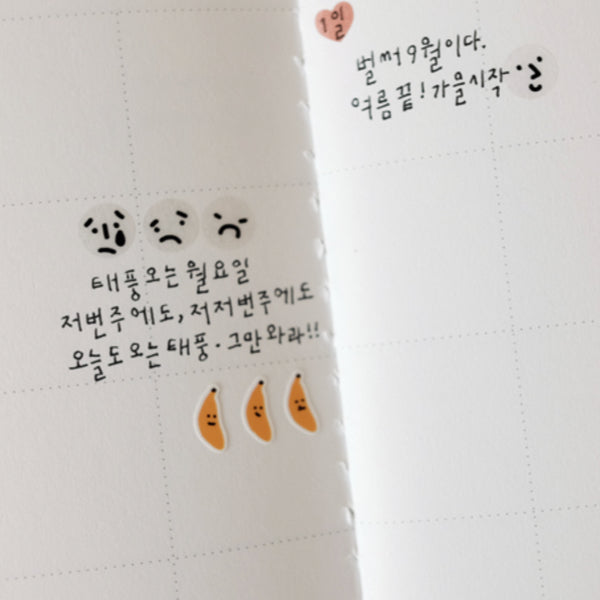 태풍오는 월요일
저번주에도, 저저번주에도
오늘도 오는 태풍. 그만 와라!!
1일
벌써 9월이다.
여름 끝! 가을시작